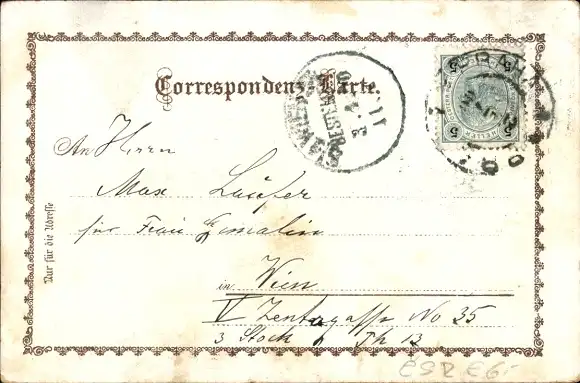 Correspondenz-Karte.
An Herrn
Max Läufer
für Frau Gemalin
in Wien
V Zentagasse No 35
3 Stock Th 13
Nur für die Adresse
WIEDEN
BESTELLT
5 5
HELLER